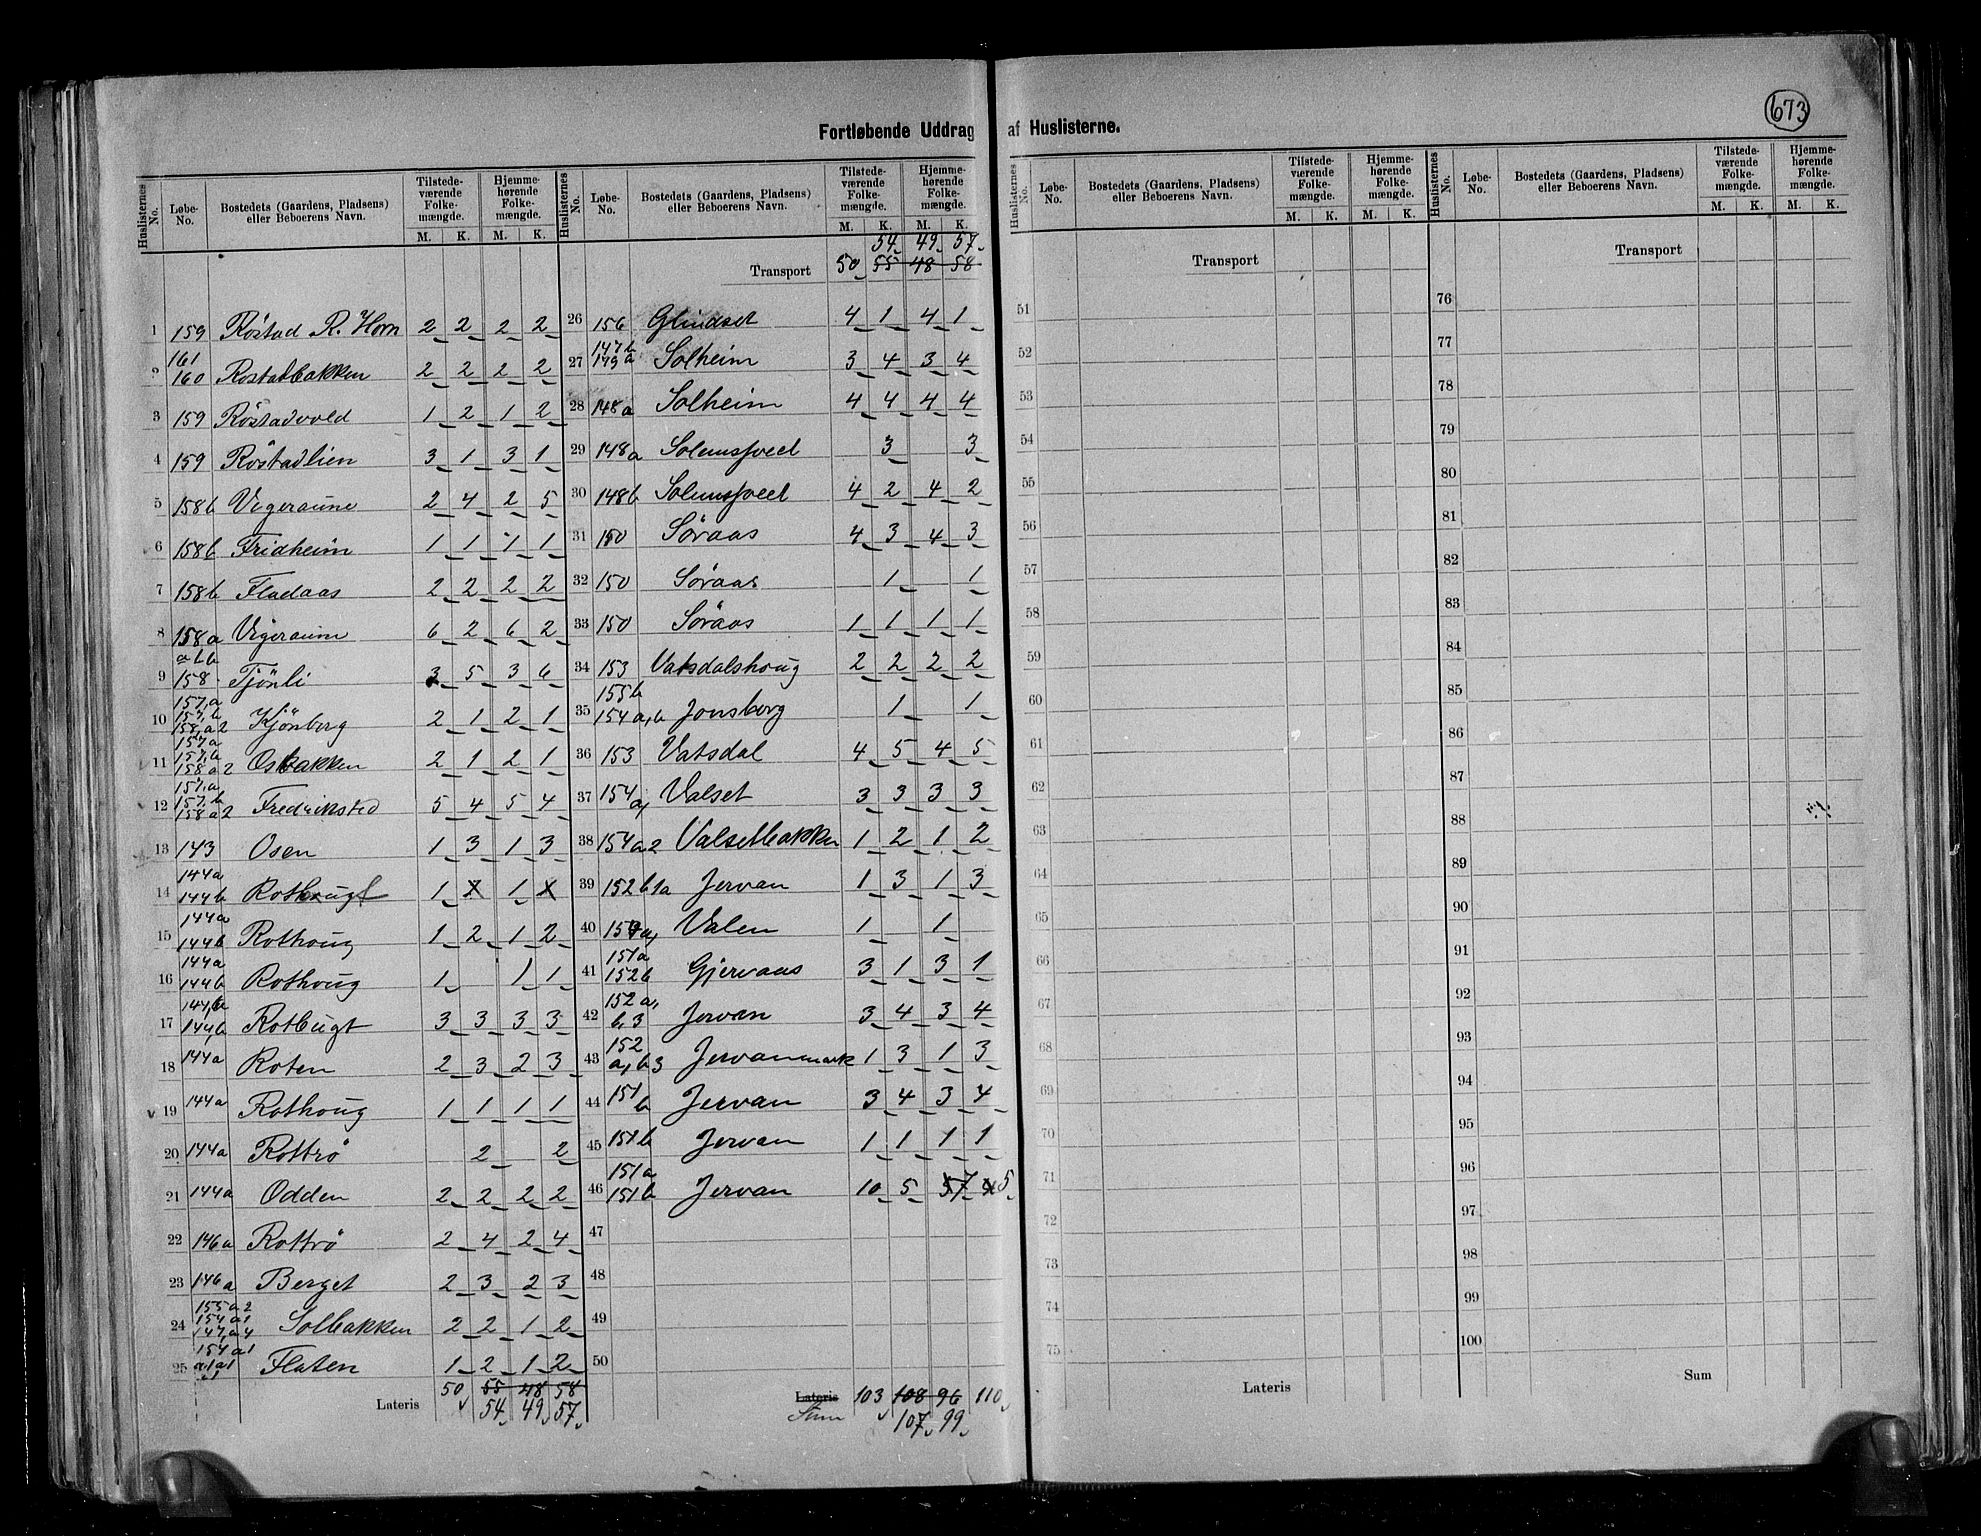 673
Fortløbende Uddrag af Huslisternes.
Huslisternes No. Løbe-No. Bostedets (Gaardens, Pladsens) eller Beboerens Navn. Tilstede-værende Folke-mængde. M. K. Hjemme-hørende Folke-mængde. M. K.
1 159 Röstad R. Horn 2 2 2 2
2 161 160 Röstadbakken 2 2 2 2
3 159 Röstadvold 1 2 1 2
4 159 Röstadlien 3 1 3 1
5 158b Vigeraune 2 4 2 5
6 158b Fridheim 1 1 1 1
7 158b Fladaas 2 2 2 2
8 158a Vigeraunn 6 2 6 2
9 158 Tjönli 3 5 3 6
10 157,a 157,b 158,a2 Kjönberg 2 1 2 1
11 157a 157,b 158a2 Osbakken 2 1 2 1
12 157,a 157,b 158a2 Fredriksted 5 4 5 4
13 143 Osen 1 3 1 3
14 144a 144b 1 1
15 144a 144b Rothoug 1 2 1 2
16 144a 144b Rothoug 1 1 1
17 144b Rotbugt 3 3 3 3
18 144a Roten 2 3 2 3
19 144a Rothoug 1 1 1 1
20 144a Rottrö 2 2
21 144a Odden 2 2 2 2
22 146a Rottrö 2 4 2 4
23 146a Berget 2 3 2 3
24 155a2 154a1 147,a4 Solbakken 2 2 1 2
25 154a1 Flaten 1 2 1 2
Lateris 50 55 48 58
54 49 57
Huslisternes No. Løbe-No. Bostedets (Gaardens, Pladsens) eller Beboerens Navn. Tilstede-værende Folke-mængde. M. K. Hjemme-hørende Folke-mængde. M. K.
54 49 57
Transport 50 55 48 58
26 156 Glindset 4 1 4 1
27 147b 149a Solheim 3 4 3 4
28 148a Solheim 4 4 4 4
29 148a 3 3
30 148b 4 2 4 2
31 150 Söraas 4 3 4 3
32 150 Söraas 1 1
33 150 Söraas 1 1 1 1
34 153 Vatsdalshoug 2 2 2 2
35 155b 154a,b Jonsberg 1 1
36 153 Vatsdal 4 5 4 5
37 154a, Valset 3 3 3 3
38 154a2 Valsetbakken 1 2 1 2
39 152b1a Jervan 1 3 1 3
40 Valen 1 1
41 151a 152b Gjervaas 3 1 3 1
42 152a, b,3 Jervan 3 4 3 4
43 152 a,b3 Jervanmark 1 3 1 3
44 151b Jervan 3 4 3 4
45 151b Jervan 1 1 1 1
46 151a 151b Jervan 10 5 7 5
47
48
49
50
Lateris 103 108 96 110
Sum 107 99
Huslisternes No. Løbe-No. Bostedets (Gaardens, Pladsens) eller Beboerens Navn. Tilstede-værende Folke-mængde. M. K. Hjemme-hørende Folke-mængde. M. K.
Transport
51
52
53
54
55
56
57
58
59
60
61
62
63
64
65
66
67
68
69
70
71
72
73
74
75
Lateris
Huslisternes No. Løbe-No. Bostedets (Gaardens, Pladsens) eller Beboerens Navn. Tilstede-værende Folke-mængde. M. K. Hjemme-hørende Folke-mængde. M. K.
Transport
76
77
78
79
80
81
82
83
84
85
86
87
88
89
90
91
92
93
94
95
96
97
98
99
100
Sum